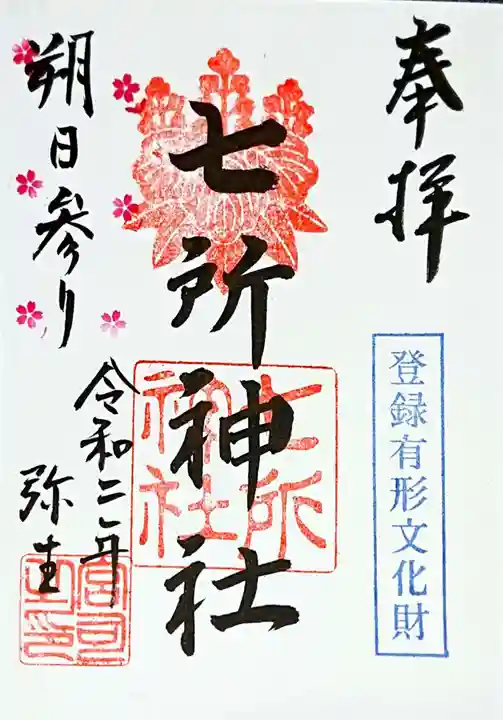 奉拝
登録有形文化財
七所神社
七所
神社
朔日参り
令和二年
弥生
宮司
之印